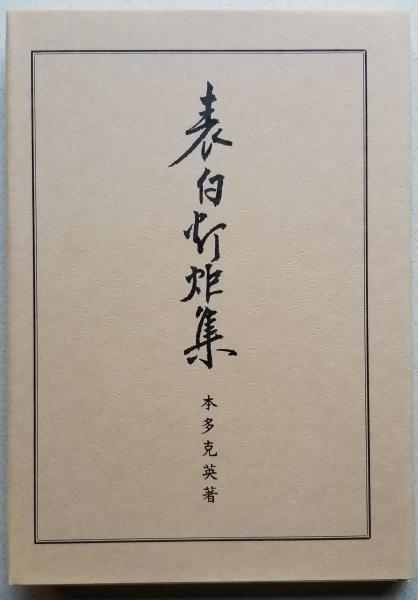 表白灯炬集
本多克英著